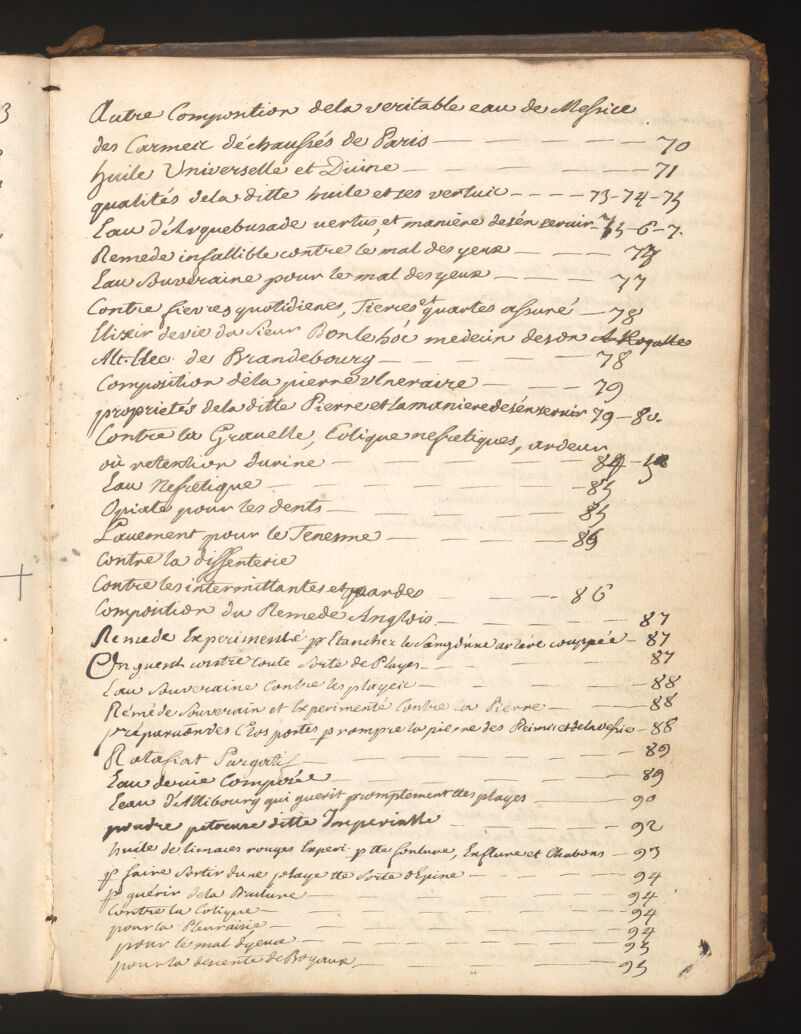 Autre Composition dela veritable eau de Melrice
des Carmeu déchaussés de Paris — 70
huile Universelle et Divine — 71
qualités dela ditte huile et ses vertuic — 73-74-75
Eau d'Arquebusade vertus, et manière desén servir - 75-6-7.
Remede infallible contre le mal des yeux — 77
Eau Souveraine pour le mal des yeux — 77
Contre fievres quotidienes, Tierces et quartes assuré — 78
Elixir de vie du Sieur medecin de son A. Royalle
Alt. Elec. de Brandebourg — 78
Composition déla pierre vlneraire — 79
proprietés dela ditte Pierre et la maniere desén servir 79-80.
Contre la Gravelle, Colique nefretiques, ardeur
où retention durine — 84
Eau Nefretique — 85
Opiate pour les dents — 85
Lavement pour le Tenesme — 86
Contre la dissenterie
Contre les intermittantes et — 86
Composition du Remede Anglois — 87
Remede Experimenté pr Etancher le Sang d'une artére couppée — 87
Onguent contre toute Sorte de Playes — 87
Eau Souveraine Contre les playeic — 88
Rémede Souverain et Experimenté Contre la Pierre — 88
préparation des Cloportes pr rompre la pierre des Reims et dela vessie — 88
Ratafiat Purgatif — 89
Eau de vie Composée — 89
Eeau d'Allibourg qui guerit promptement les playes — 90
poudre pitreuse ditte Imperialle — 92
huile de limaces rouges Experi. pr tte foulure, Enflure et Chabons — 93
pr faire Sortir dune playe tte Sorte d'Epine — 94
pr guérir dela Brulure — 94
Contre la Colique — 94
pour la Pleuraisie — 94
pour le mal dyeux — 95
pour la desente de Boyeaux — 95